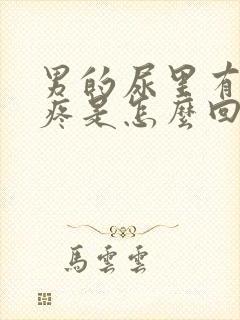 男的尿里有
疼是怎麼回
馬雲雲